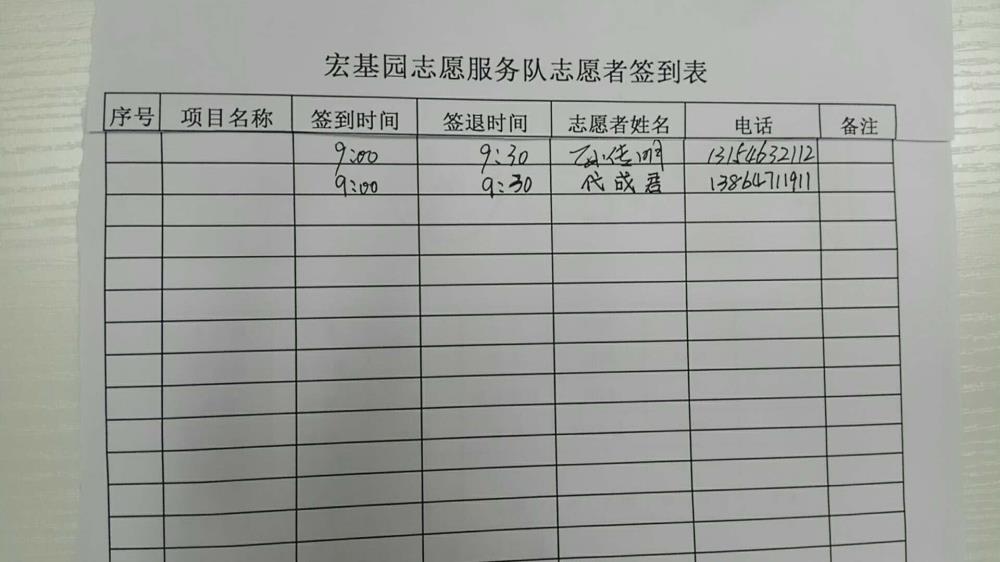 宏基园志愿服务队志愿者签到表
序号 项目名称 签到时间 签退时间 志愿者姓名 电话 备注
9:00 9:30 孙传明 13154632112
9:00 9:30 代成君 13864711911